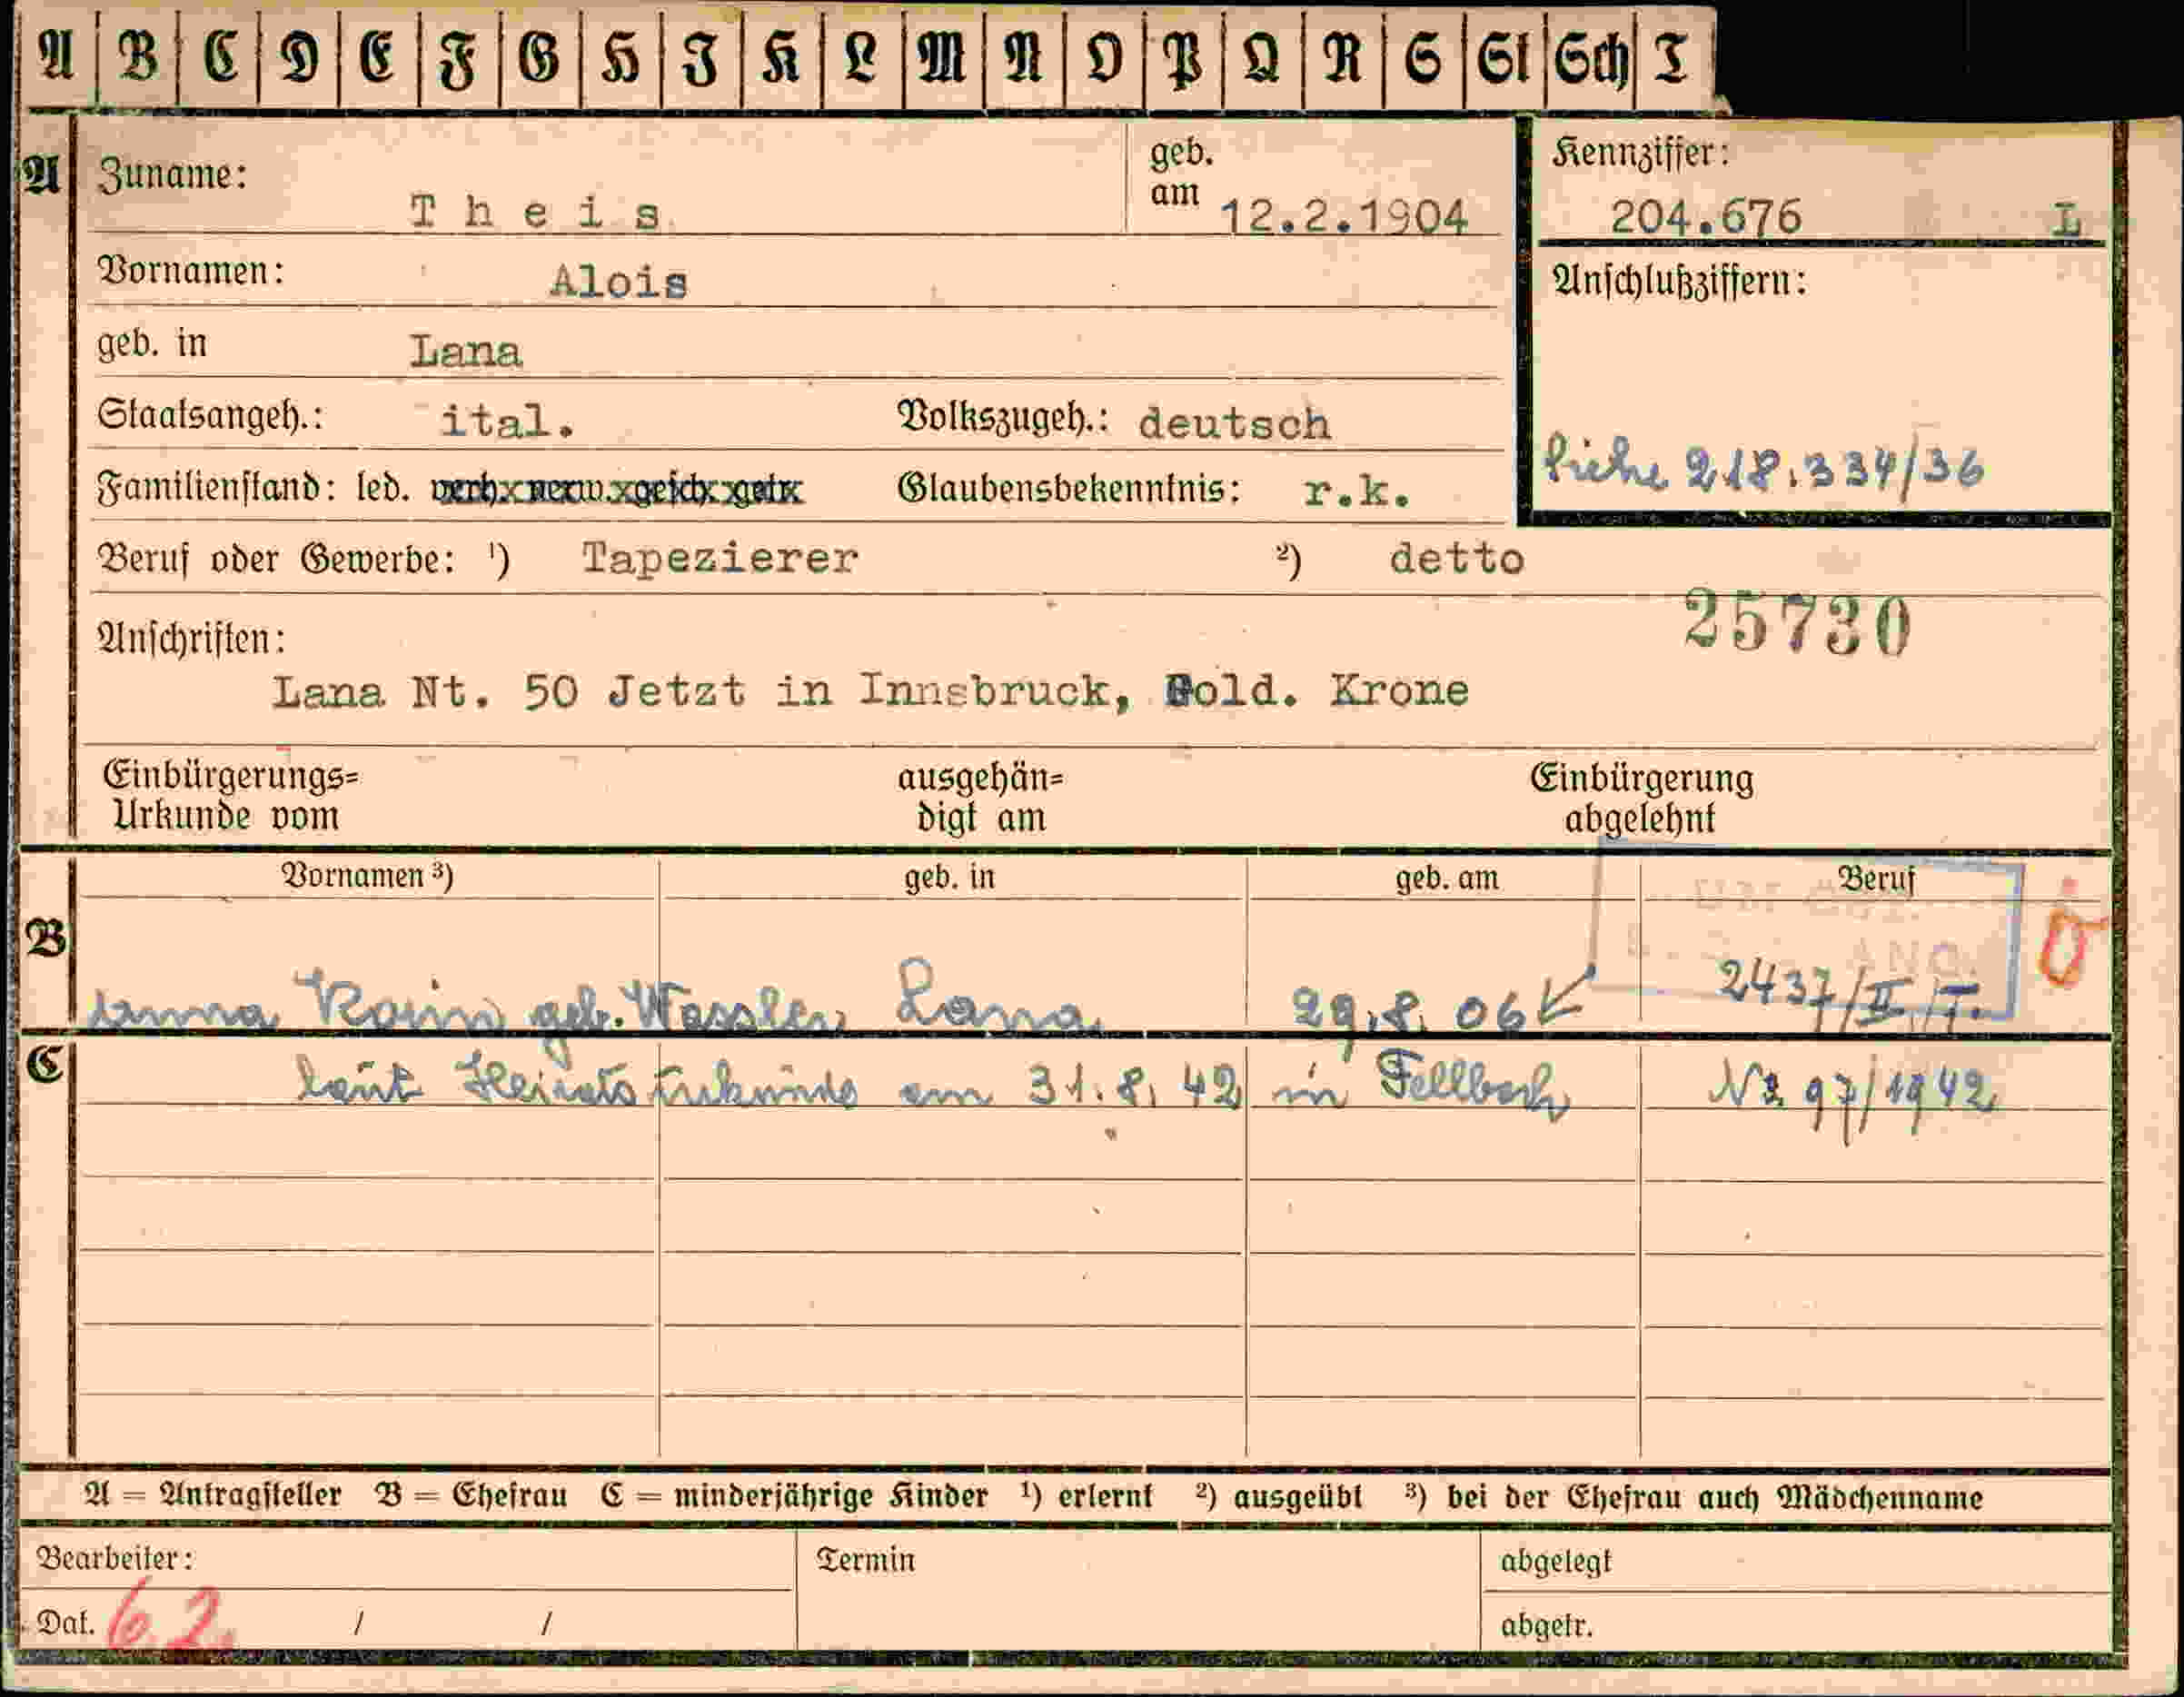 A B C D E F G H I K L M N O P Q R S St Sch T
A Zuname: Theis geb. am 12.2.1904 Kennziffer: 204.676 L
Vornamen: Alois Anschlußziffern:
geb. in Lana
Staatsangeh.: ital. Volkszugeh.: deutsch
siehe 218.334/36
Familienstand: led. verh. verw. gesch. getr. Glaubensbekenntnis: r.k.
Beruf oder Gewerbe: ¹) Tapezierer ²) detto
25730
Anschriften:
Lana Nt. 50 Jetzt in Innsbruck, Gold. Krone
Einbürgerungs= ausgehän= Einbürgerung
Urkunde vom digt am abgelehnt
Vornamen ³) geb. in geb. am Beruf
B
Anna Rain geb. Wassler Lana 29.8.06 2437/II/T.
C laut Heiratsurkunde am 31.8.42 in Fellbach Nr. 97/1942
A = Antragsteller B = Ehefrau C = minderjährige Kinder ¹) erlernt ²) ausgeübt ³) bei der Ehefrau auch Mädchenname
Bearbeiter: Termin abgelegt
Dat. 6.2. / / abgetr.